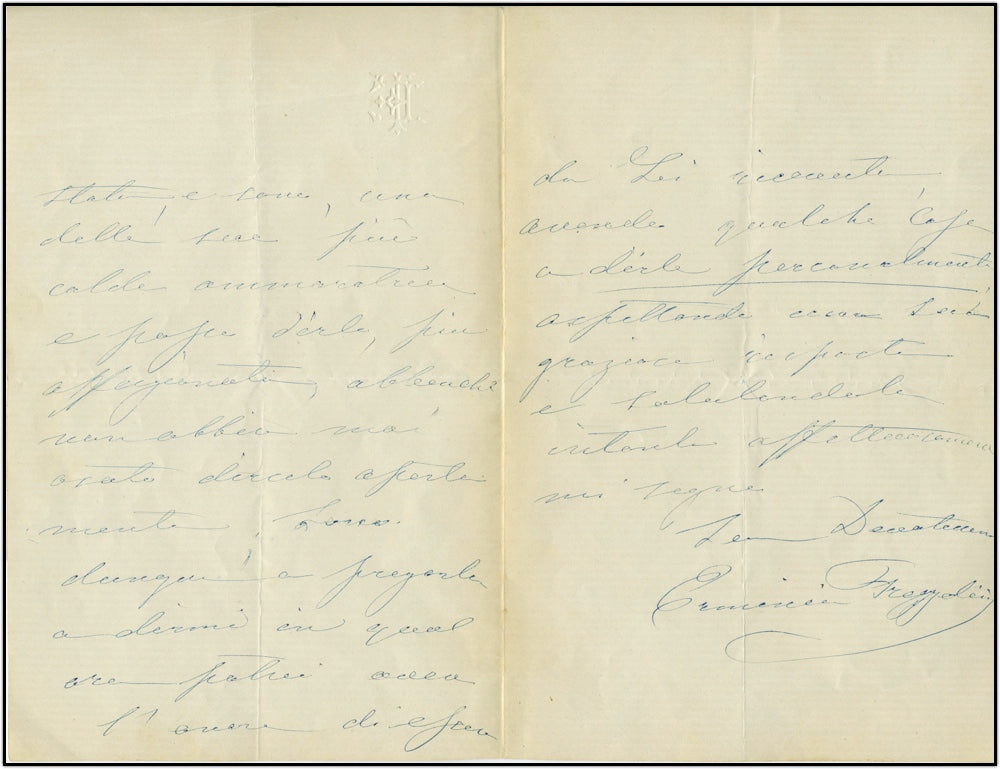 stata, e sono, una
delle sue più
calde ammiratrici
e posso dirle, più
affezionata, abbenchè
non abbia mai
osato dircelo aperta
mente. Sono
dunque a pregarla
a dirmi in qual
ora potrei aver
l'onore di essere
da Lei ricevuta
avendo qualche cosa
a dirle personalmente
aspettando una Sua
graziosa risposta
e salutandola
intanto affettuosamente
mi segno
Sua Devotissima
Erminia Frezzolini